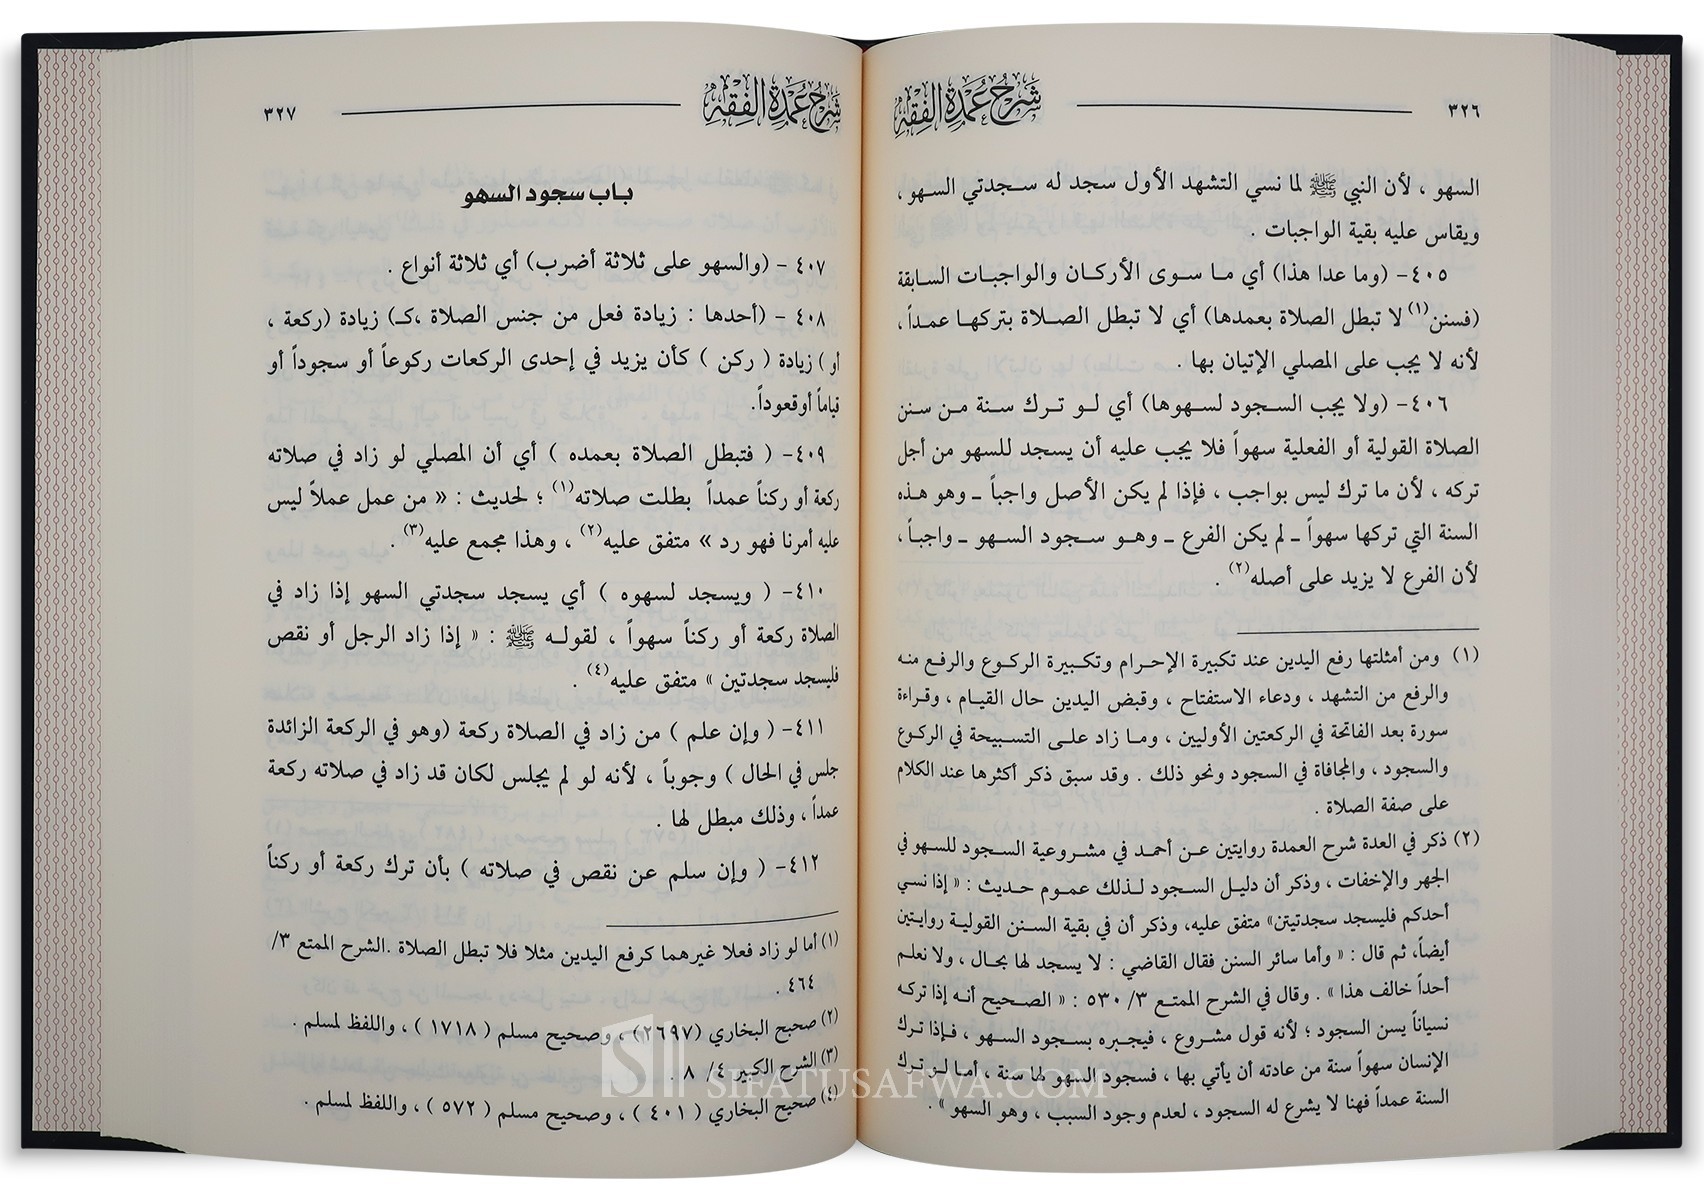 ٣٢٦
شرح عمدة الفقه
السهو ، لأن النبي ﷺ لما نسي التشهد الأول سجد له سجدتي السهو ،
ويقاس عليه بقية الواجبات .
٤٠٥- (وما عدا هذا) أي ما سوى الأركان والواجبات السابقة
(فسنن(١) لا تبطل الصلاة بعمدها) أي لا تبطل الصلاة بتركها عمداً ،
لأنه لا يجب على المصلي الإتيان بها .
٤٠٦- (ولا يجب السجود لسهوها) أي لو ترك سنة من سنن
الصلاة القولية أو الفعلية سهواً فلا يجب عليه أن يسجد للسهو من أجل
تركه ، لأن ما ترك ليس بواجب ، فإذا لم يكن الأصل واجباً ـ وهو هذه
السنة التي تركها سهواً ـ لم يكن الفرع ـ وهو سجود السهو ـ واجباً ،
لأن الفرع لا يزيد على أصله(٢) .
(١) ومن أمثلتها رفع اليدين عند تكبيرة الإحرام وتكبيرة الركوع والرفع منه
والرفع من التشهد ، ودعاء الاستفتاح ، وقبض اليدين حال القيام ، وقراءة
سورة بعد الفاتحة في الركعتين الأوليين ، وما زاد على التسبيحة في الركوع
والسجود ، والمجافاة في السجود ونحو ذلك . وقد سبق ذكر أكثرها عند الكلام
على صفة الصلاة .
(٢) ذكر في العدة شرح العمدة روايتين عن أحمد في مشروعية السجود للسهو في
الجهر والإخفات ، وذكر أن دليل السجود لذلك عموم حديث : « إذا نسي
أحدكم فليسجد سجدتيتن» متفق عليه، وذكر أن في بقية السنن القولية روايتين
أيضاً، ثم قال : « وأما سائر السنن فقال القاضي : لا يسجد لها بحال ، ولا نعلم
أحداً خالف هذا » . وقال في الشرح الممتع ٣/ ٥٣٠ : « الصحيح أنه إذا تركه
نسياناً يسن السجود ؛ لأنه قول مشروع ، فيجبره بسجود السهو ، فإذا ترك
الإنسان سهواً سنة من عادته أن يأتي بها ، فسجود السهو لها سنة ، أما لو ترك
السنة عمداً فهنا لا يشرع له السجود ، لعدم وجود السبب ، وهو السهو » .
شرح عمدة الفقه
٣٢٧
باب سجود السهو
٤٠٧ - (والسهو على ثلاثة أضرب) أي ثلاثة أنواع .
٤٠٨ - (أحدها : زيادة فعل من جنس الصلاة ،كـ) زيادة (ركعة ،
أو ) زيادة ( ركن ) كأن يزيد في إحدى الركعات ركوعاً أو سجوداً أو
قياماً أوقعوداً.
٤٠٩- ( فتبطل الصلاة بعمده ) أي أن المصلي لو زاد في صلاته
ركعة أو ركناً عمداً بطلت صلاته(١) ؛ لحديث : « من عمل عملاً ليس
عليه أمرنا فهو رد » متفق عليه(٢) ، وهذا مجمع عليه(٣) .
٤١٠- ( ويسجد لسهوه ) أي يسجد سجدتي السهو إذا زاد في
الصلاة ركعة أو ركناً سهواً ، لقوله ﷺ : « إذا زاد الرجل أو نقص
فليسجد سجدتين » متفق عليه(٤) .
٤١١- ( وإن علم ) من زاد في الصلاة ركعة (وهو في الركعة الزائدة
جلس في الحال ) وجوباً ، لأنه لو لم يجلس لكان قد زاد في صلاته ركعة
عمداً ، وذلك مبطل لها .
٤١٢- ( وإن سلم عن نقص في صلاته ) بأن ترك ركعة أو ركناً
(١) أما لو زاد فعلا غيرهما كرفع اليدين مثلا فلا تبطل الصلاة .الشرح الممتع ٣/
٤٦٤ .
(٢) صحيح البخاري (٢٦٩٧) ، وصحيح مسلم ( ١٧١٨ ) ، واللفظ لمسلم .
(٣) الشرح الكبير ٤/ ٨ .
(٤) صحيح البخاري ( ٤٠١ ) ، وصحيح مسلم ( ٥٧٢ ) ، واللفظ لمسلم .
SIFATUSAFWA.COM